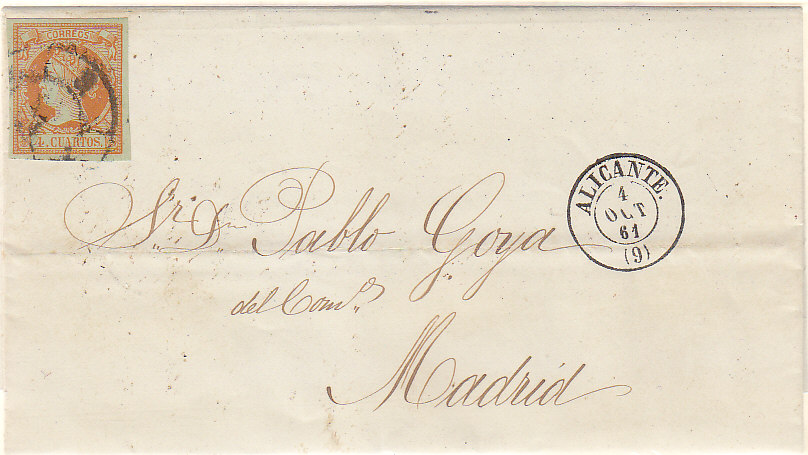 CORREOS
4. CUARTOS.
ALICANTE.
4
OCT
61
(9)
Sr. Dn. Pablo Goya
del Comº
Madrid